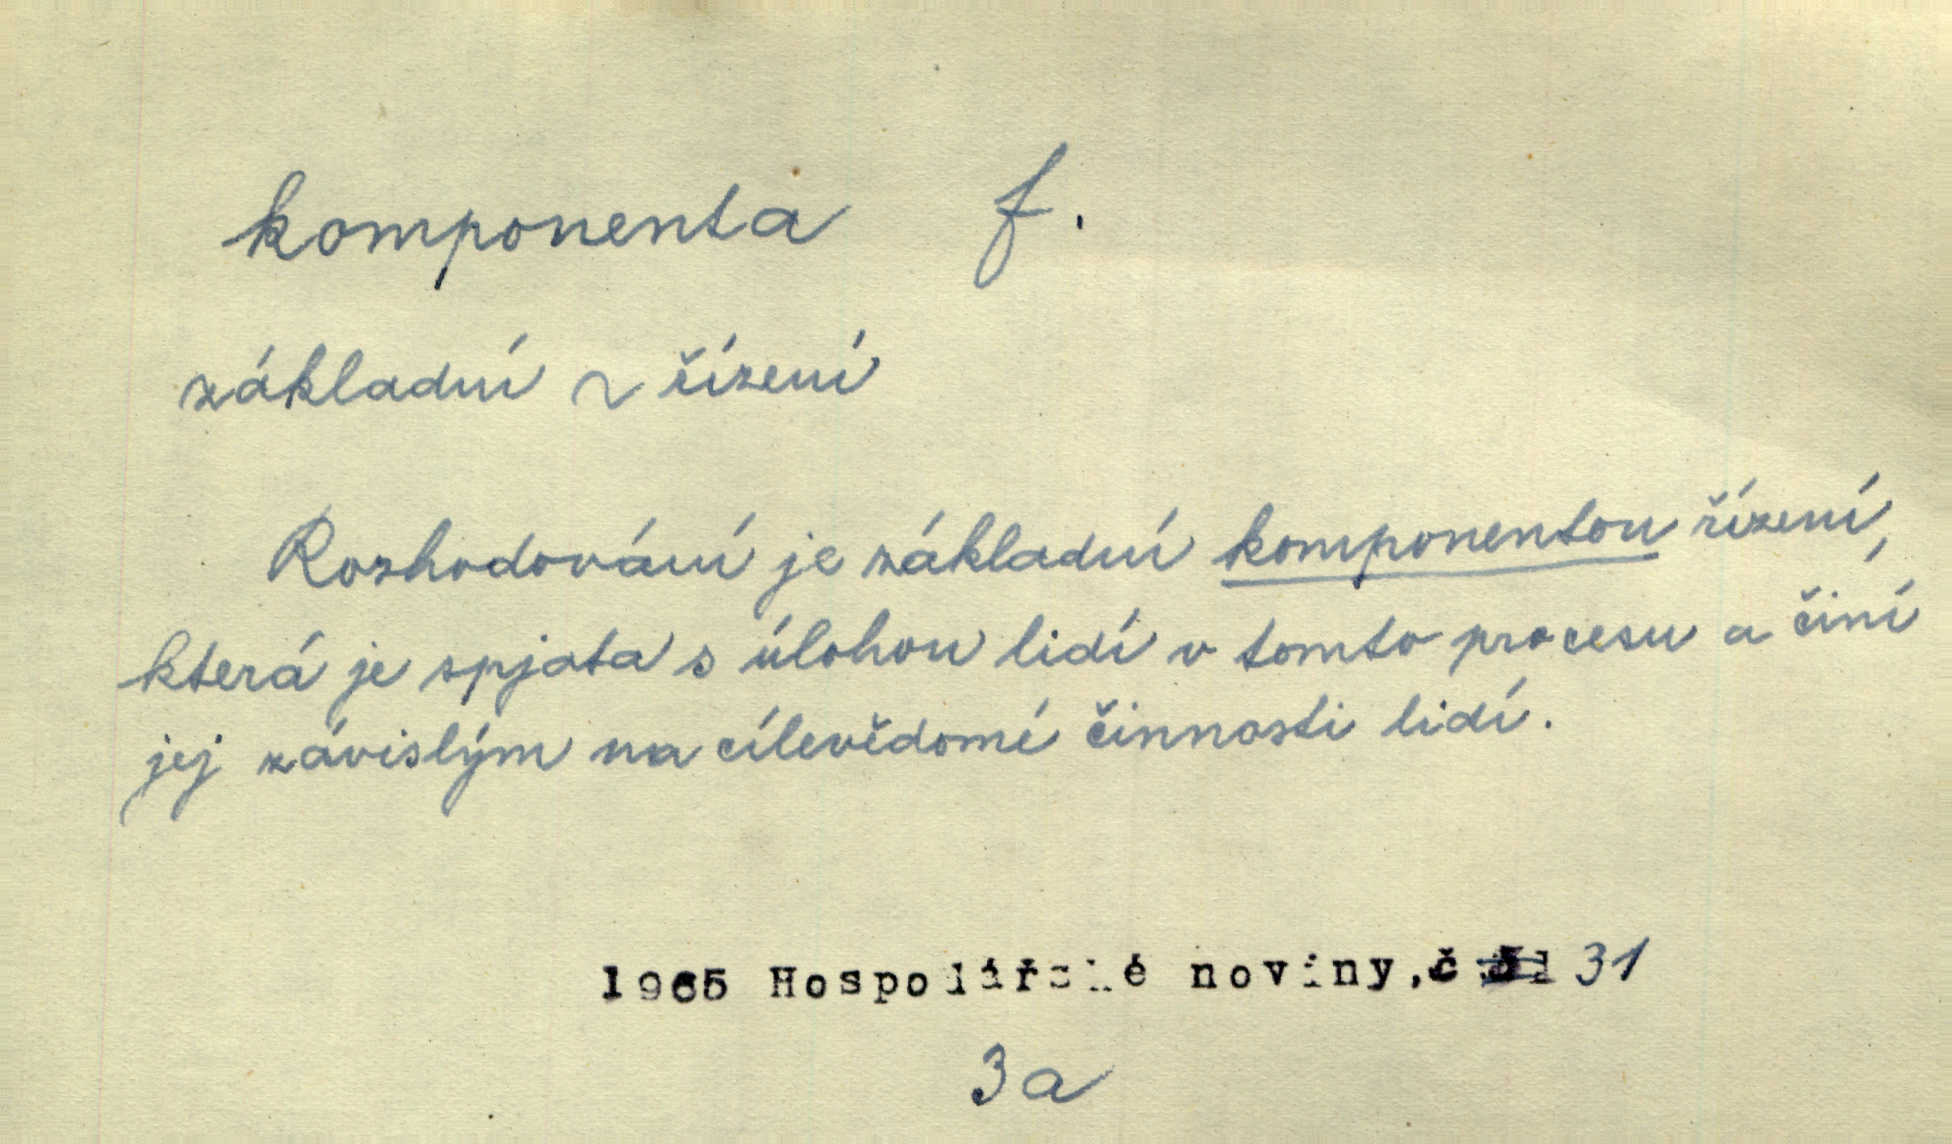 komponenta f.
základní ~ řízení
Rozhodování je základní komponentou řízení,
která je spjata s úlohou lidí v tomto procesu a činí
jej závislým na cílevědomé činnosti lidí.
1965 Hospodářské noviny, č 31
3a